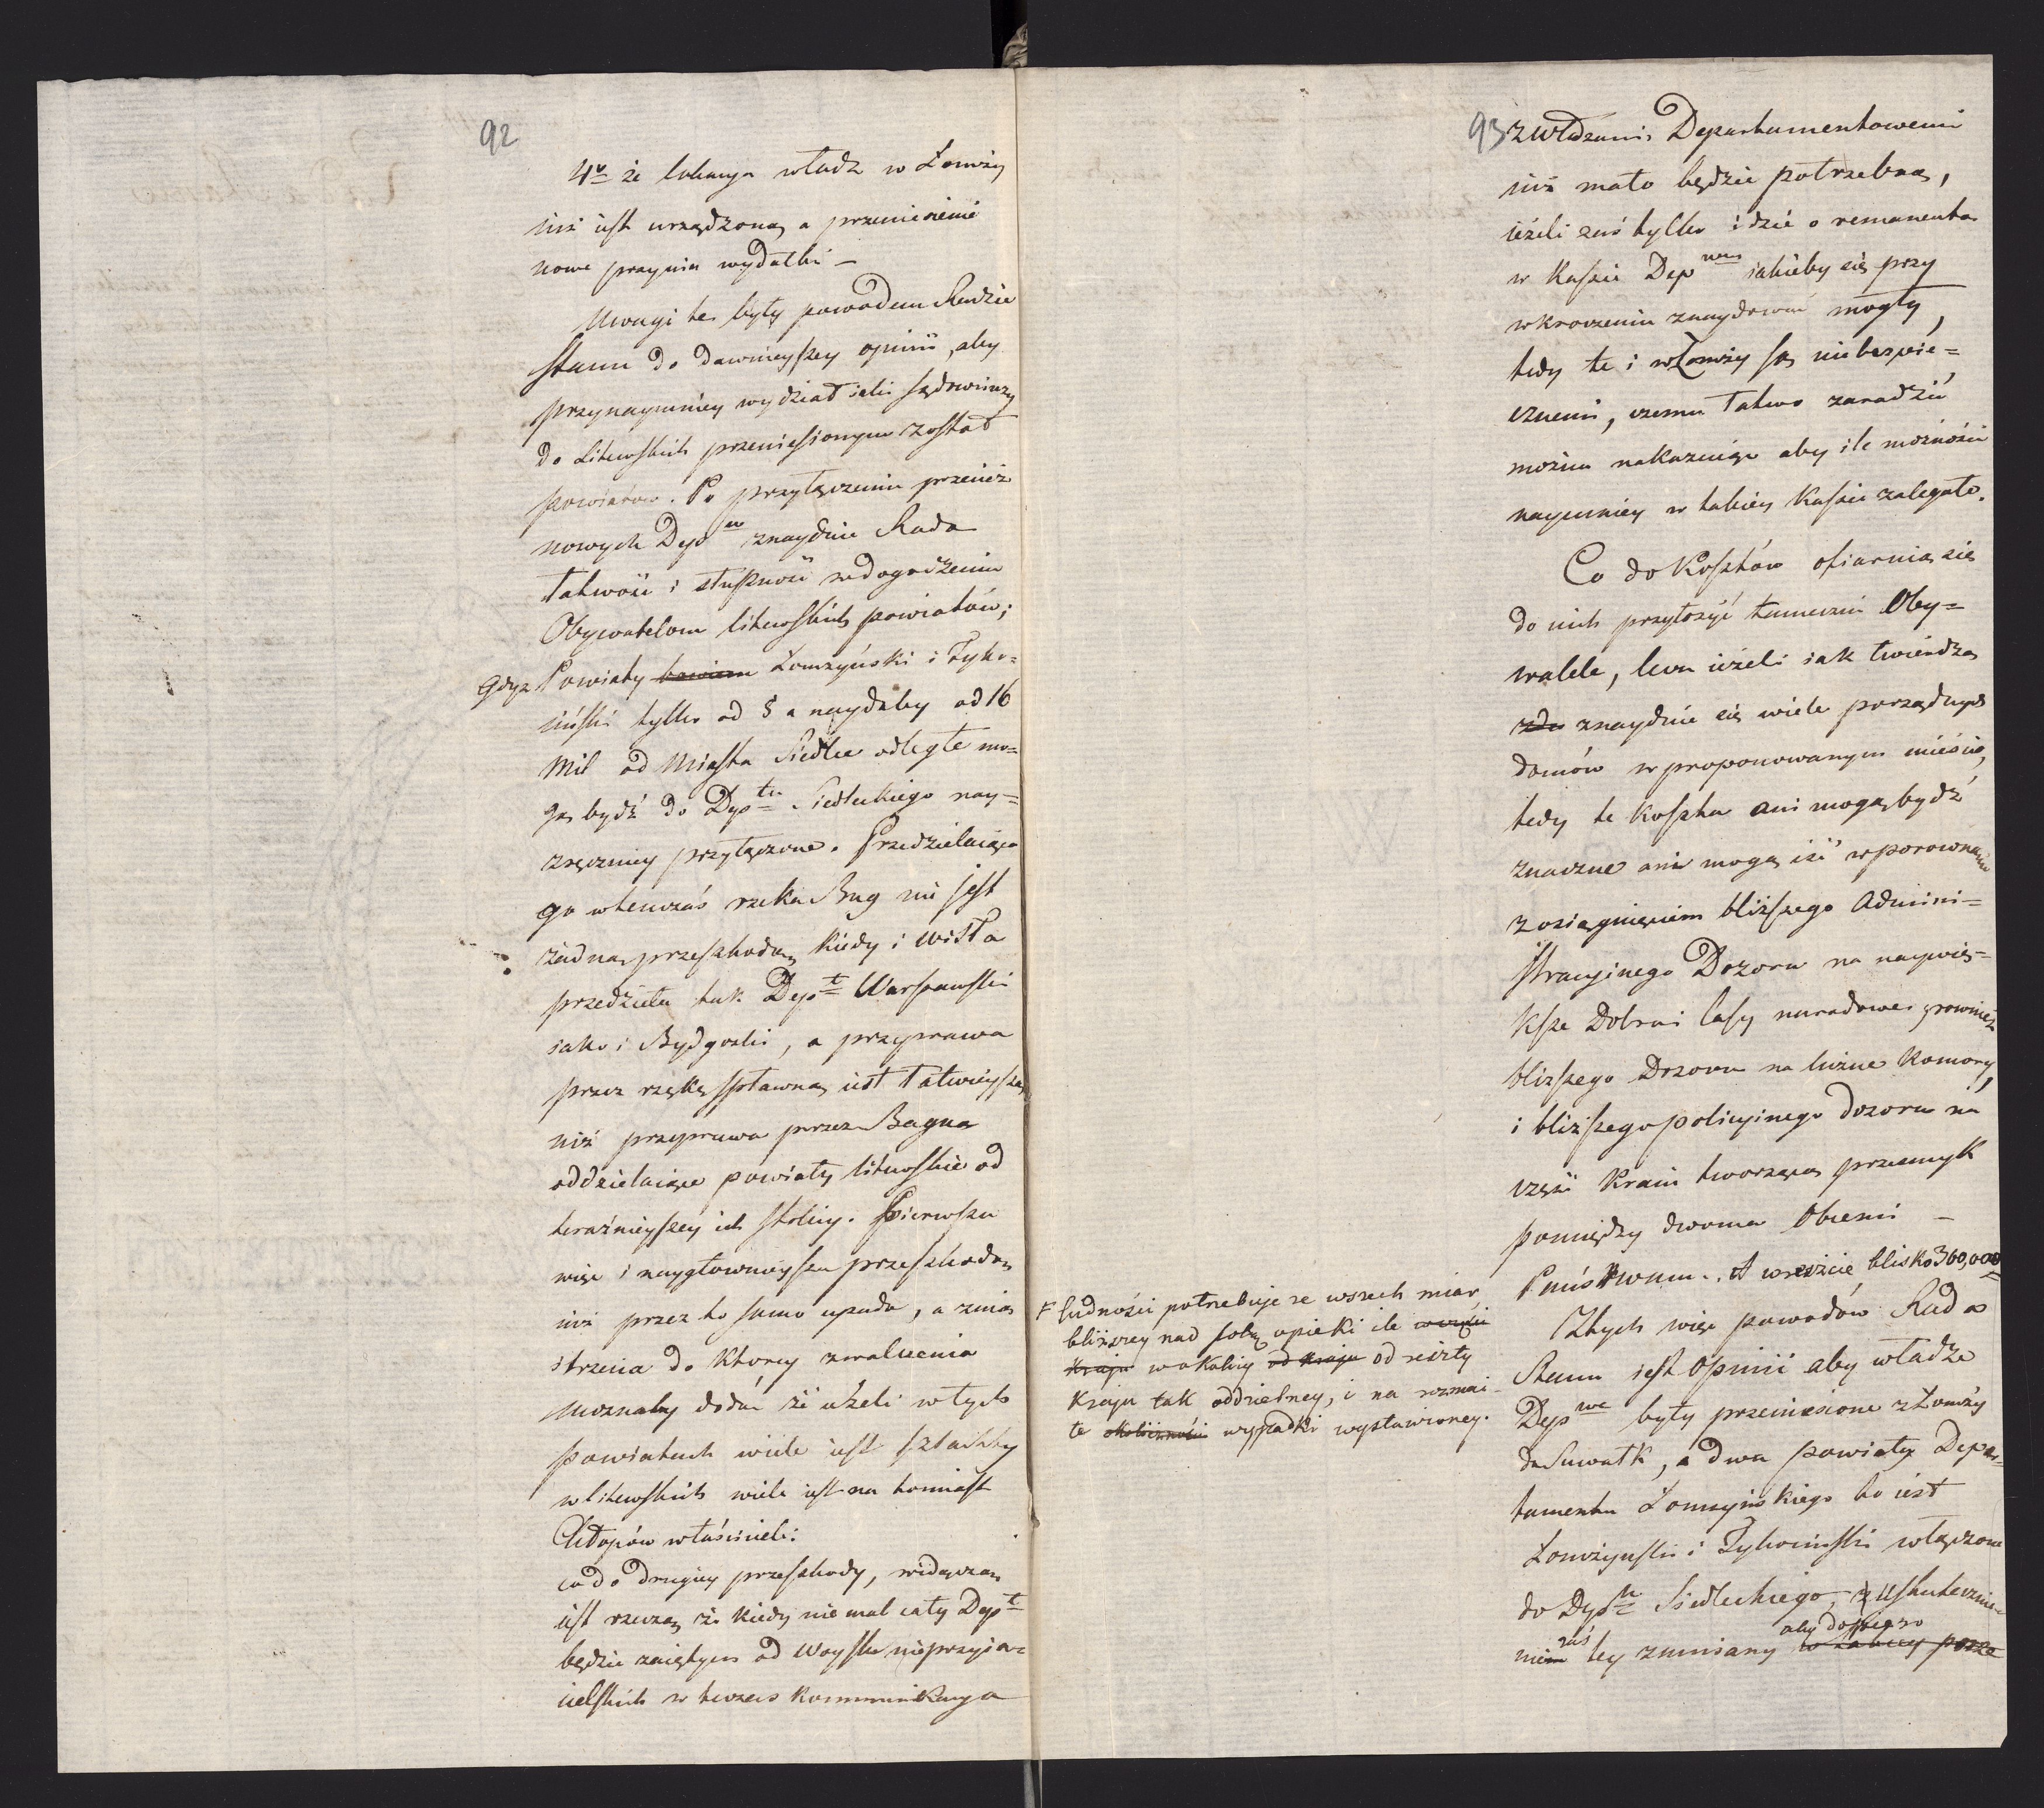 92
4º że lokacya władz w Łomży
iuż iest urządzoną, a przeniesienie
nowe przynia wydatki —
Uwagi te były powodem Radzie
Stanu do dawnieyszey opinii, aby
przynaymniey wydział ieśli sądowniczy
do Litewskich przeniesionym został
powiatów. Po przyłączeniu przecież
nowych Dep^w znaydzie Rada
łatwość i słuszność w dogodzeniu
Obywatelom litewskich powiatów;
gdyż Powiaty bowiem Łomżyński i Tyko=
ciński tylko od 5 a naydaley od 16
Mil od Miasta Siedlec odległe mo=
gą bydź do Dep^tu Siedleckiego nay=
zręczniey przyłączone. Przedzielaiąca
go wtenczas rzeka Bug nie jest
żadną przeszkodą, kiedy i Wisła
przedziela tak Dep^t Warszawski
iako i Bydgoski, a przeprawa
przez rzekę spławną iest łatwieyszą,
niż przeprawa przez Bagna
oddzielaiące powiaty litewskie od
teraźnieyszey ich stolicy. Pierwsza
więc i naygłownieysza przeszkoda,
iuż przez to samo upada, a zmie
strzenia do ktorey zwalczenia
możnaby dodać że ieżeli w tych
powiatach wiele iest szlachty
w litewskich wiele iest na tomiast
Chłopów właścicieli:
co do drugiey przeszkody, widoczną
iest rzeczą, że kiedy nie mal cały Dep^t
będzie zaiętym od Woyska nieprzyia=
cielskich w tenczas kommunikacya
93
z władzami Departamentowemi
iuż mało będzie potrzebną,
ieżeli zaś tylko idzie o remanenta
w Kassie Dep^wey iakieby się przy
wkroczeniu znaydować mogły,
tedy te i w Łomży są niebezpie=
cznemi, czemu łatwo zaradzić
można nakazuiąc aby ile możności
naymniey w takiey Kassie zalegało.
Co do Kosztów ofiaruią się
do nich przyłożyć tameczni Oby=
watele, lecz ieżeli iak twierdzą
zda znaydzie się wiele porządnych
domów w proponowanym mieście,
tedy te koszta ani mogą bydź
znaczne ani mogą iść w porownaniu
z osiągnięciem bliższego Admini=
stracyinego Dozoru na naywię=
ksze Dobra i lasy narodowe, rownież
bliższego Dozoru na liczne Komory,
i bliższego policyinego dozoru na
część Kraiu tworzącą przesmyk
pomiędzy dwoma Obcemi —
Państwami. A wreszcie blisko 360,000
F ludności potrzebuje ze wszech miar
bliższey nad sobą opieki ile w części
Kraju w okolicy od kraju od reszty
Kraju tak oddzielney, i na rozmai-
te okoliczności wypadki wystawioney.
Z tych więc powodów Rada
Stanu jest Opinii aby władze
Dep^we były przeniesione z Łomży
do Suwałk, a dwa powiaty Depar=
tamentu Łomżyńskiego to iest
Łomżyński i Tykociński włączone
do Dep^tu Siedleckiego, z uskutecznie=
niem zaś tey zmiany aby dopiero w takiey porze